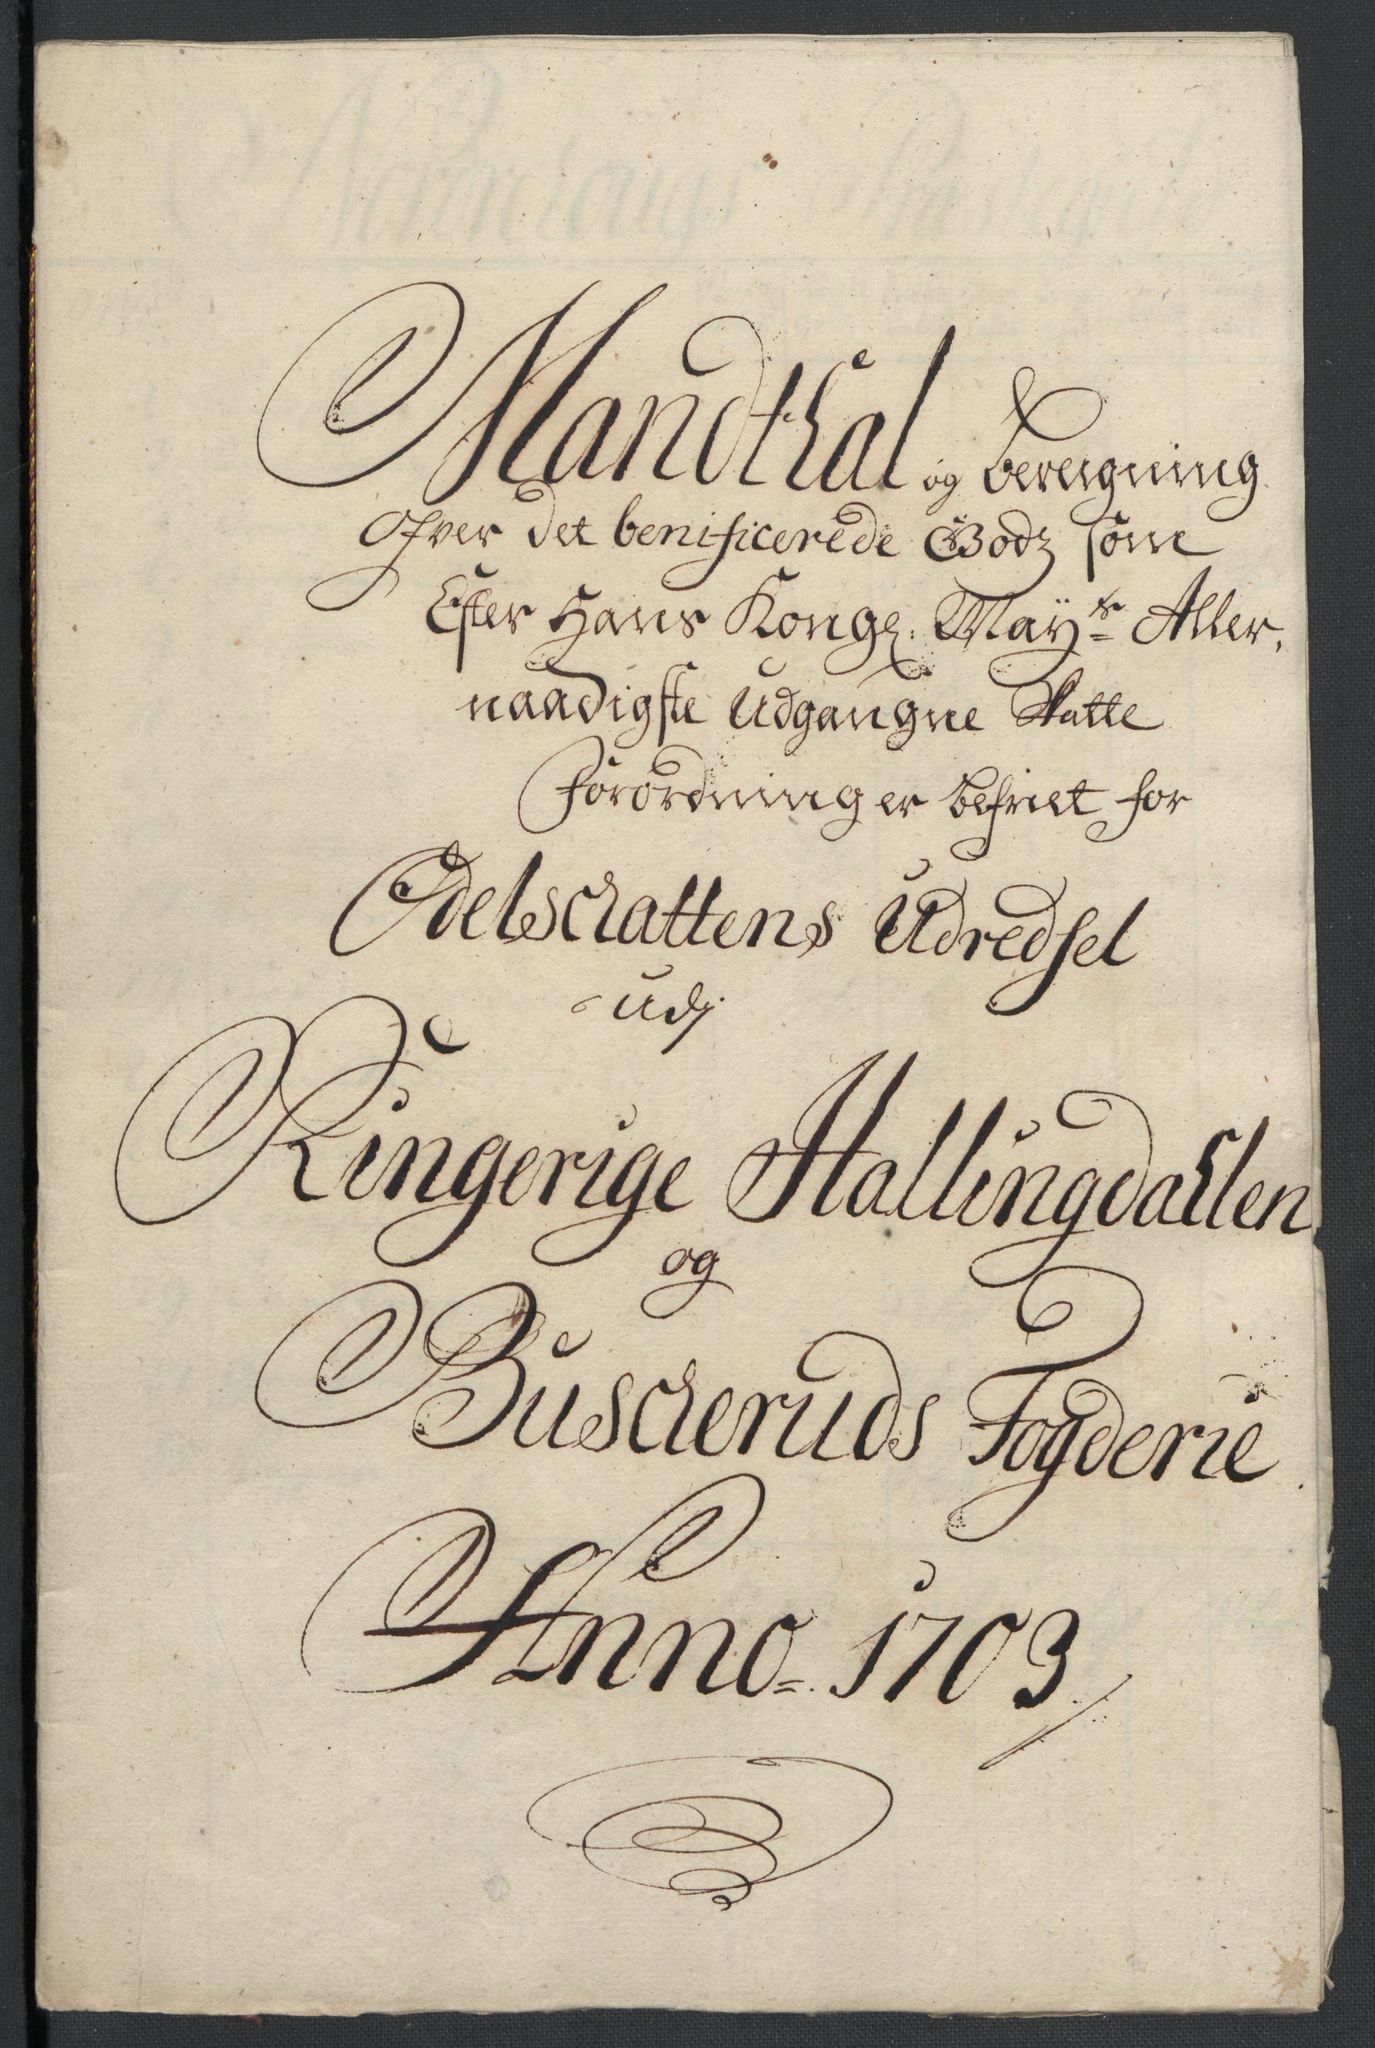 Mandtal og beregning
ofver det benificerede Godz som
Efter Hans Kongl. Mayts Aller,
naadigste udgangne Skatte
Forordning er befriet for
Odelschattens Udredsel
udj
Ringerige Hallingdahlen
og
Buscheruds Fogderie
Anno 1703